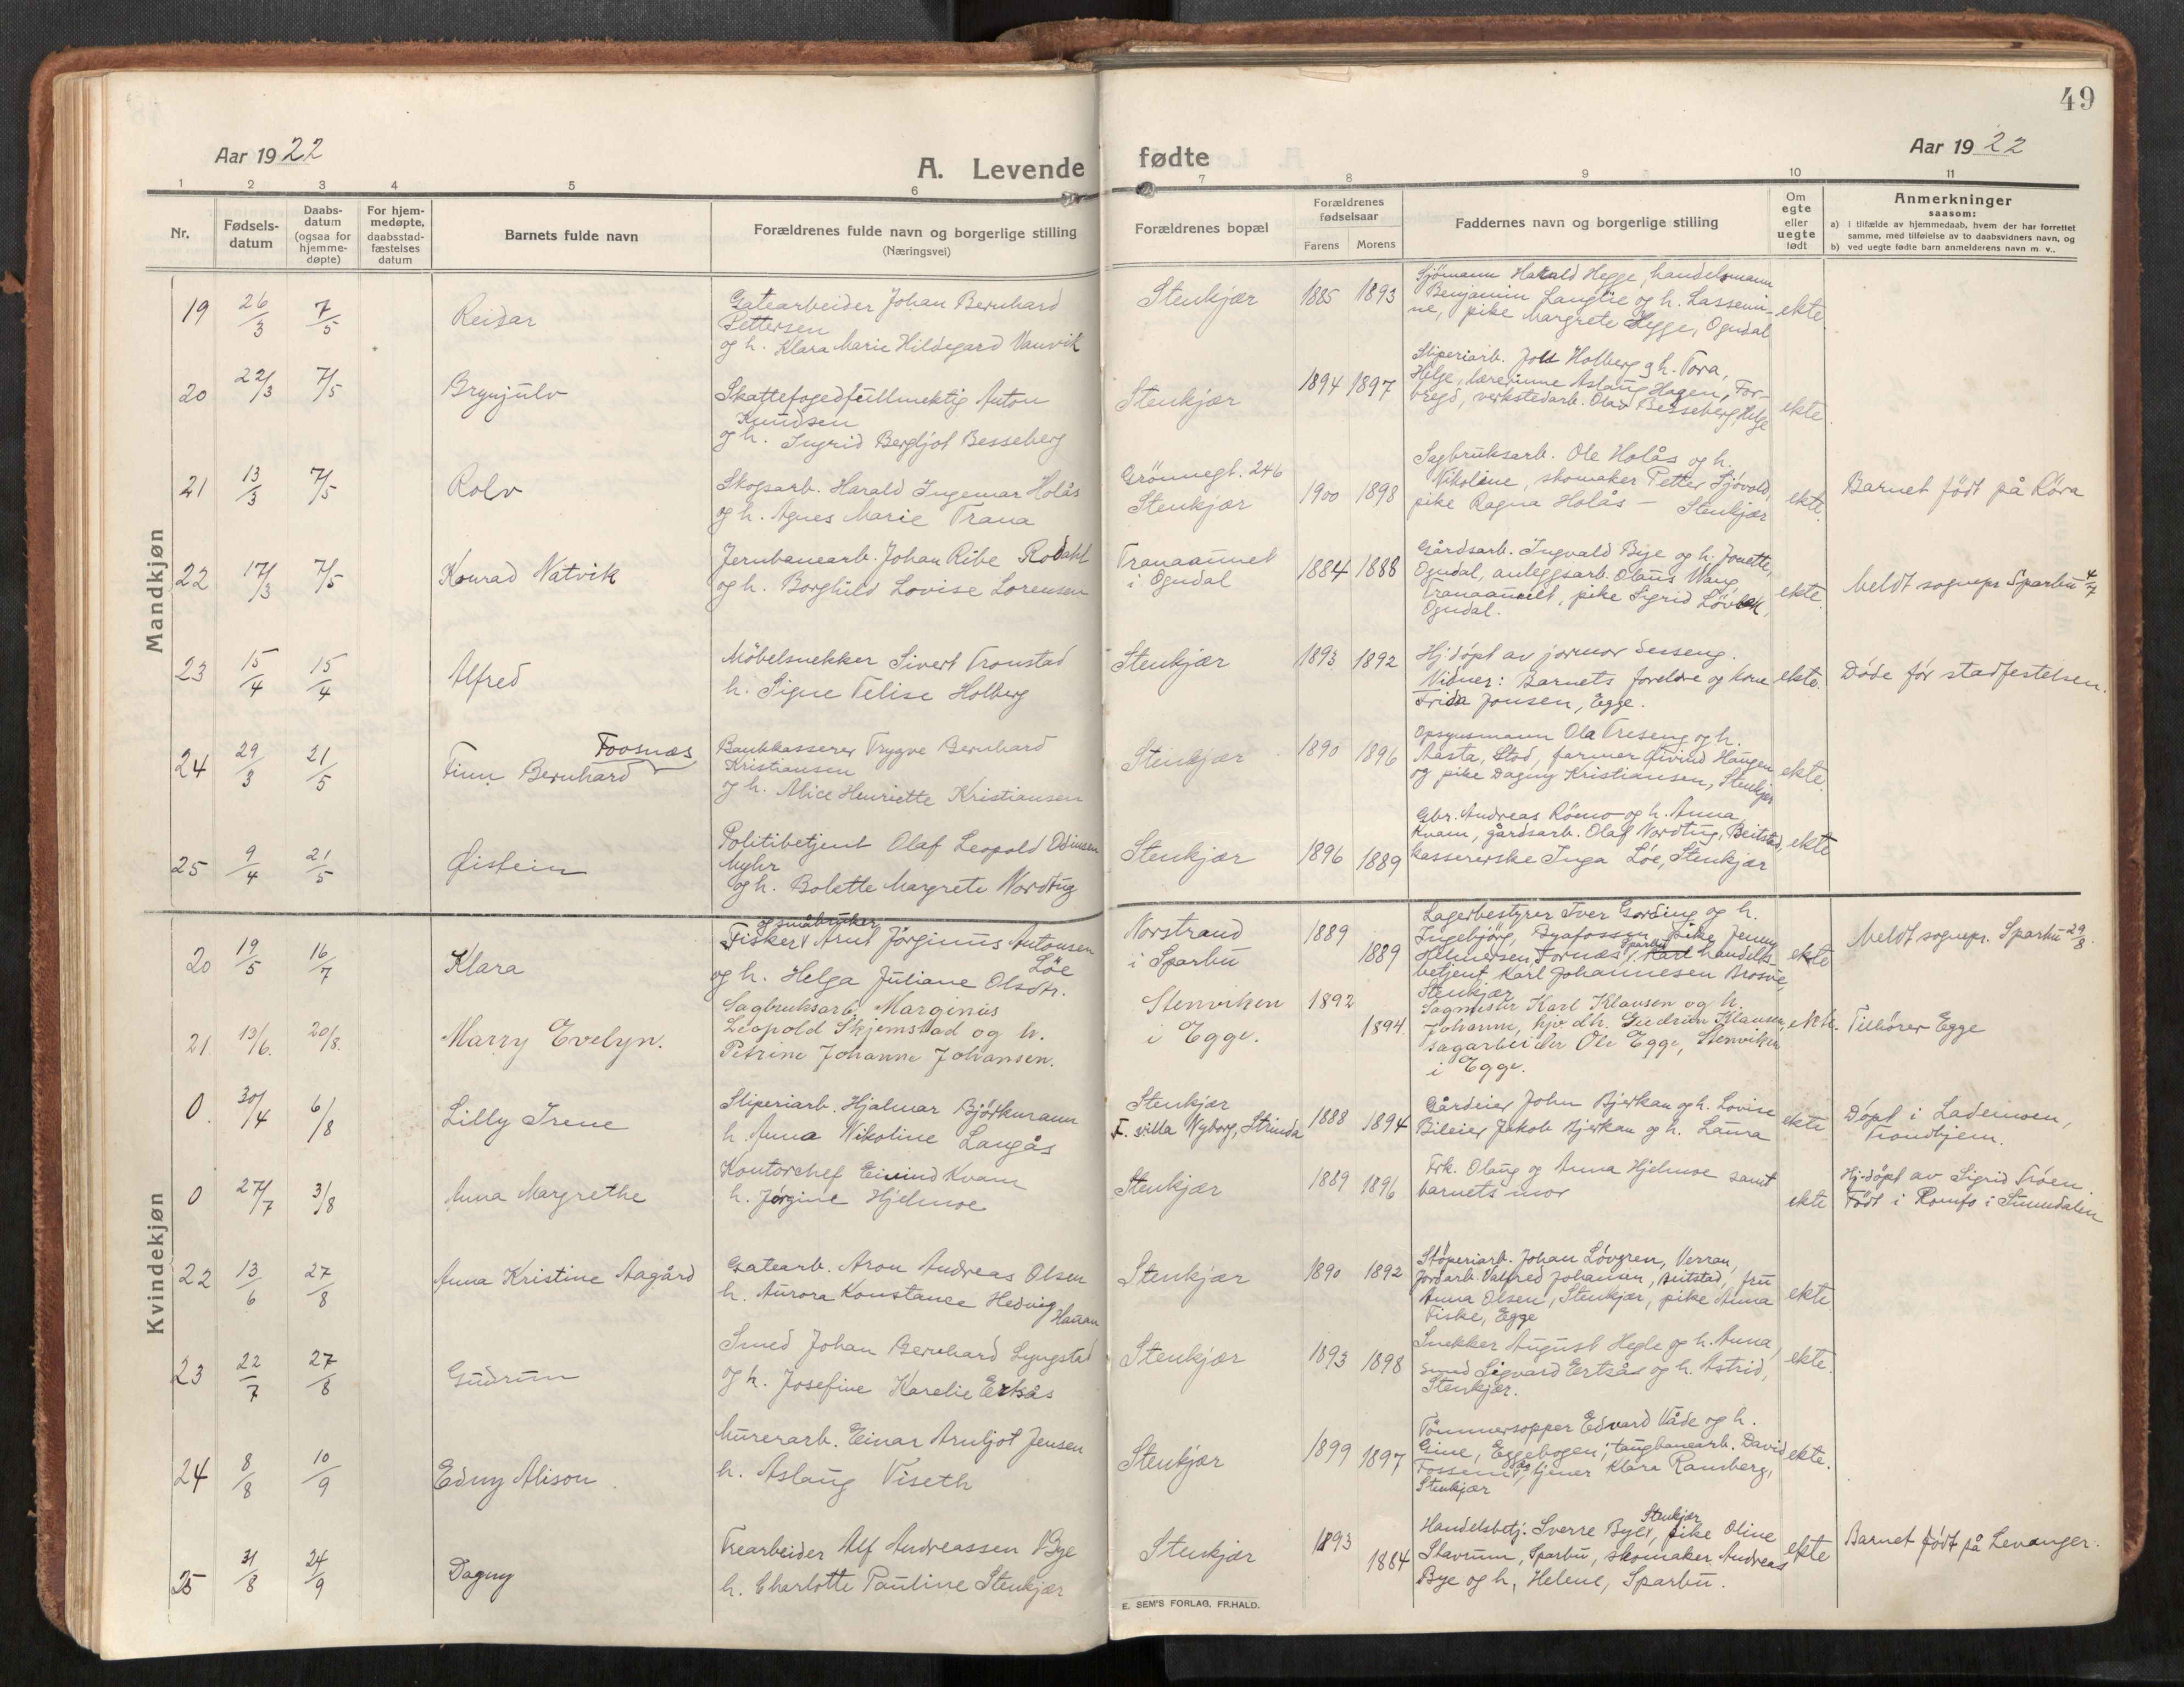 49
Aar 1922
A. Levende fødte
Aar 1922
1 2 3 4 5 6 7 8 9 10 11
Nr.
Fødsels-
datum
Daabs-
datum
(ogsaa for
hjemme-
døpte)
For hjem-
medøpte,
daabsstad-
fæstelses
datum
Barnets fulde navn
Forældrenes fulde navn og borgerlige stilling
(Næringsvei)
Forældrenes bopæl
Forældrenes
fødselsaar
Farens Morens
Faddernes navn og borgerlige stilling
Om
egte
eller
uegte
født
Anmerkninger
saasom:
a) i tilfælde av hjemmedaab, hvem der har forrettet
samme, med tilføielse av to daabsvidners navn, og
b) ved uegte fødte barn anmelderens navn m. v..
Mandkjøn
19 26/3 7/5 Reidar
Gatearbeider Johan Bernhard
Pettersen
og h. Klara Marie Hildegard Vanvik
Stenkjær 1885 1893
Sjömann Harald Hegge, handelsmann
Benjamin Langlie og h. Lassemi-
ne, pike Margrete Hegge, Ogndal
ekte.
20 22/3 7/5 Brynjulv
Skattefogedfullmektig Anton
Knudsen
og h. Ingrid Bergljot Besseberg
Stenkjær 1894 1897
Sliperiarb. Joh Holberg og h. Tora,
Helge, lærerinne Aslaug Hagen, For-
bregd, verkstedarb. Olav Besseberg, Helge
ekte.
21 13/3 7/5 Rolv
Skogsarb. Harald Ingemar Holås
og h. Agnes Marie Trana
Grönnegt. 246
Stenkjær 1900 1898
Sagbruksarb. Ole Holås og h.
Nikoline, skomaker Petter Sjövold,
pike Ragna Holås – Stenkjær
ekte.
Barnet født på Röra
22 17/3 7/5 Konrad Natvik
Jernbanearb. Johan Ribe Rodahl
og h. Borghild Lovise Lorensen
Tranaaunet
i Ogndal 1884 1888
Gårdsarb. Ingvald Bye og h. Jonette,
Ogndal, anleggsarb. Olaus Wang,
Tranaaunet, pike Sigrid Lövbak,
Ogndal.
ekte.
Meldt sognepr. Sparbu 4/7
23 15/4 15/4 Alfred
Möbelsnekker Sivert Tronstad
h. Signe Telise Holberg
Stenkjær 1893 1892
Hj.døpt av jormor Sesseng.
Vidner: Barnets foreldre og Kone
Frida Jonsen, Egge.
ekte.
Døde før stadfestelsen.
24 29/3 21/5 Finn Bernhard Foosnæs
Bankkasserer Trygve Bernhard
Kristiansen
og h. Alice Henriette Kristiansen
Stenkjær 1890 1896
Opsynsmann Ola Treseng og h.
Aasta, Stod, farmer Øivind Haugen
og pike Dagny Kristiansen, Stenkjær
ekte.
25 9/4 21/5 Øistein
Politibetjent Olaf Leopold Odinsen
Myhr
og h. Bolette Margrete Nordtug
Stenkjær 1896 1889
Gbr. Andreas Römo og h. Anna,
Kvam, gårdsarb. Olaf Nordtug, Beitstad,
kassererske Inga Löe, Stenkjær
ekte
Kvindekjøn
20 19/5 16/7 Klara
og småbruker
Fisker Arnt Jörginus Antonsen
Löe
og h. Helga Juliane Olsdtr.
Norstrand
i Sparbu 1889 1889
Lagerbestyrer Iver Gording og h.
Ingebjörg, Byafossen, Pike Jenny
Helmersen, Fornæs Sparbu, Karl handels-
betjent Karl Johannesen Brosve,
Stenkjær
ekte
Meldt sognepr. Sparbu 29/8.
21. 13/6. 20/8. Marry Evelyn.
Sagbruksarb. Marginus
Leopold Skjemstad og h.
Petrine Johanne Johansen.
Stenviken
i Egge. 1892 1894
Sagmester Karl Klausen og h.
Johanne, hjv.dh. Gudrun Klausen,
sagarbeider Ole Egge, Stenviken
i Egge.
ekte.
Tilhörer Egge
0. 30/4 6/8 Lilly Irene
Sliperiarb. Hjalmar Björkmann
h. Anna Nikoline Langås
Stenkjær
F. villa Nyborg, Strinda 1888 1894
Gårdeier John Bjerkan og h. Lovise
Bileier Jakob Bjerkan og h. Laura
ekte
Døpt i Lademoen,
Trondhjem.
0 27/7 3/8 Anna Margrethe
Kontorchef Eivind Kvam
h. Jørgine Hjelmoe
Stenkjær 1889 1896
Frk. Olaug og Anna Hjelmoe samt
barnets mor
ekte
Hj.døpt av Sigrid Tröen.
Født i Romfo i Sunndalen
22 13/6 27/8 Anna Kristine Aagård
Gatearb. Aron Andreas Olsen
h. Aurora Konstance Hedvig Haugan
Stenkjær 1890 1892
Støperiarb. Johan Lövgren, Verran,
Jordarb. Valfred Johansen, Beitstad, fru
Anna Olsen, Stenkjær, pike Anna
Fiske, Egge
ekte
23 22/7 27/8 Gudrun
Smed Johan Bernhard Lyngstad
og h. Josefine Karelie Ertsås
Stenkjær 1893 1898
Snekker August Hegle og h. Anna,
smed Sigvard Ertsås og h. Astrid,
Stenkjær.
ekte.
24 8/8 10/9 Edny Alison.
Murerarb. Einar Arnljot Jensen
h. Aslaug Viseth
Stenkjær 1899 1897
Tömmersopper Edvard Våde og h.
Gine, Eggebogen; taugbanearb. David
Fossem, og tjener Klara Ramberg,
Stenkjær
ekte.
25 31/8 24/9 Dagny
Trearbeider Alf Andreassen Bye
h. Charlotte Pauline Stenkjær
Stenkjær 1893 1884
Handelsbetj. Sverre Bye, Stenkjær, pike Oline
Stavrum, Sparbu, skomaker Andreas
Bye og h, Helene, Sparbu.
ekte
Barnet født på Levanger.
E. SEM'S FORLAG, FR.HALD.